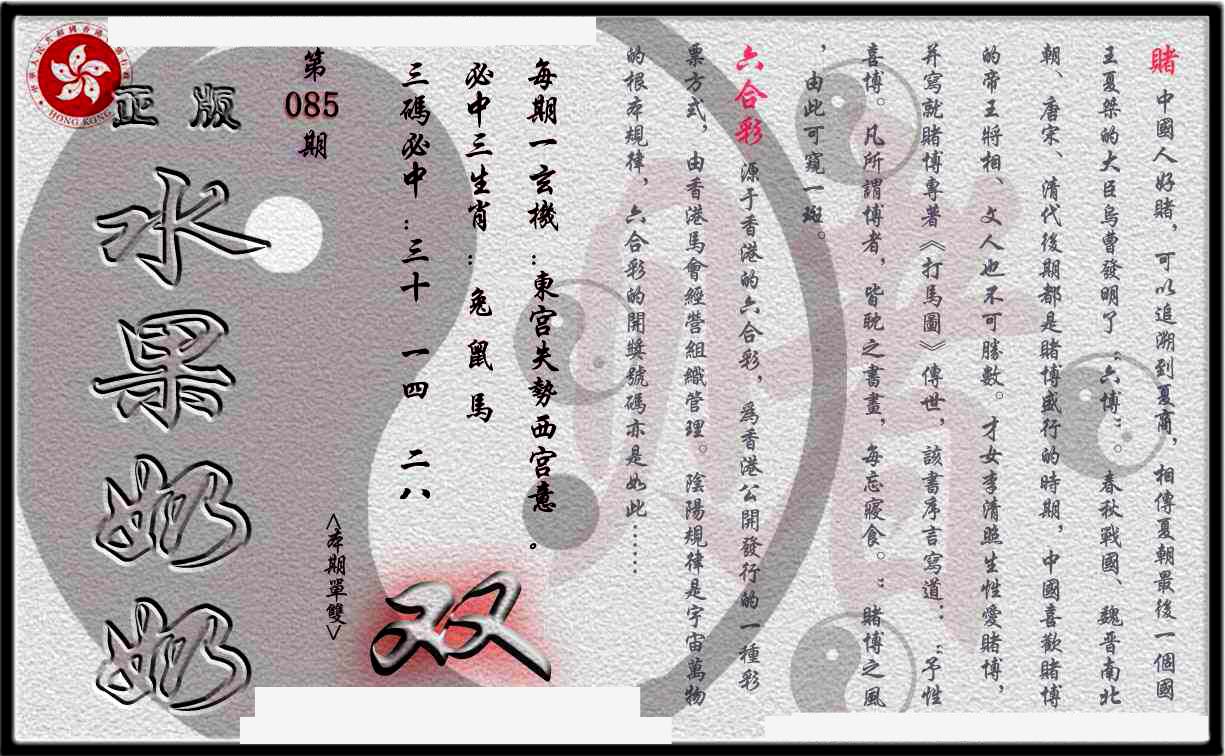 賭 中國人好賭，可以追溯到夏商，相傳夏朝最後一個國
王夏桀的大臣烏曹發明了“六博”。春秋戰國、魏晉南北
朝、唐宋、清代後期都是賭博盛行的時期，中國喜歡賭博
的帝王將相、文人也不可勝數。才女李清照生性愛賭博，
并寫就賭博專著《打馬圖》傳世，該書序言寫道：“予性
喜博。凡所謂博者，皆耽之晝夜，每忘寢食。”賭博之風
，由此可窺一斑。
六合彩 源于香港的六合彩，爲香港公開發行的一種彩
票方式，由香港馬會經營組織管理。陰陽規律是宇宙萬物
的根本規律，六合彩的開獎號碼亦是如此……
每期一玄機：東宮失勢西宮意。
必中三生肖：兔 鼠 馬
三碼必中：三十 一四 二八
<本期單雙>
双
第
085
期
正版
水果奶奶
HONG KONG